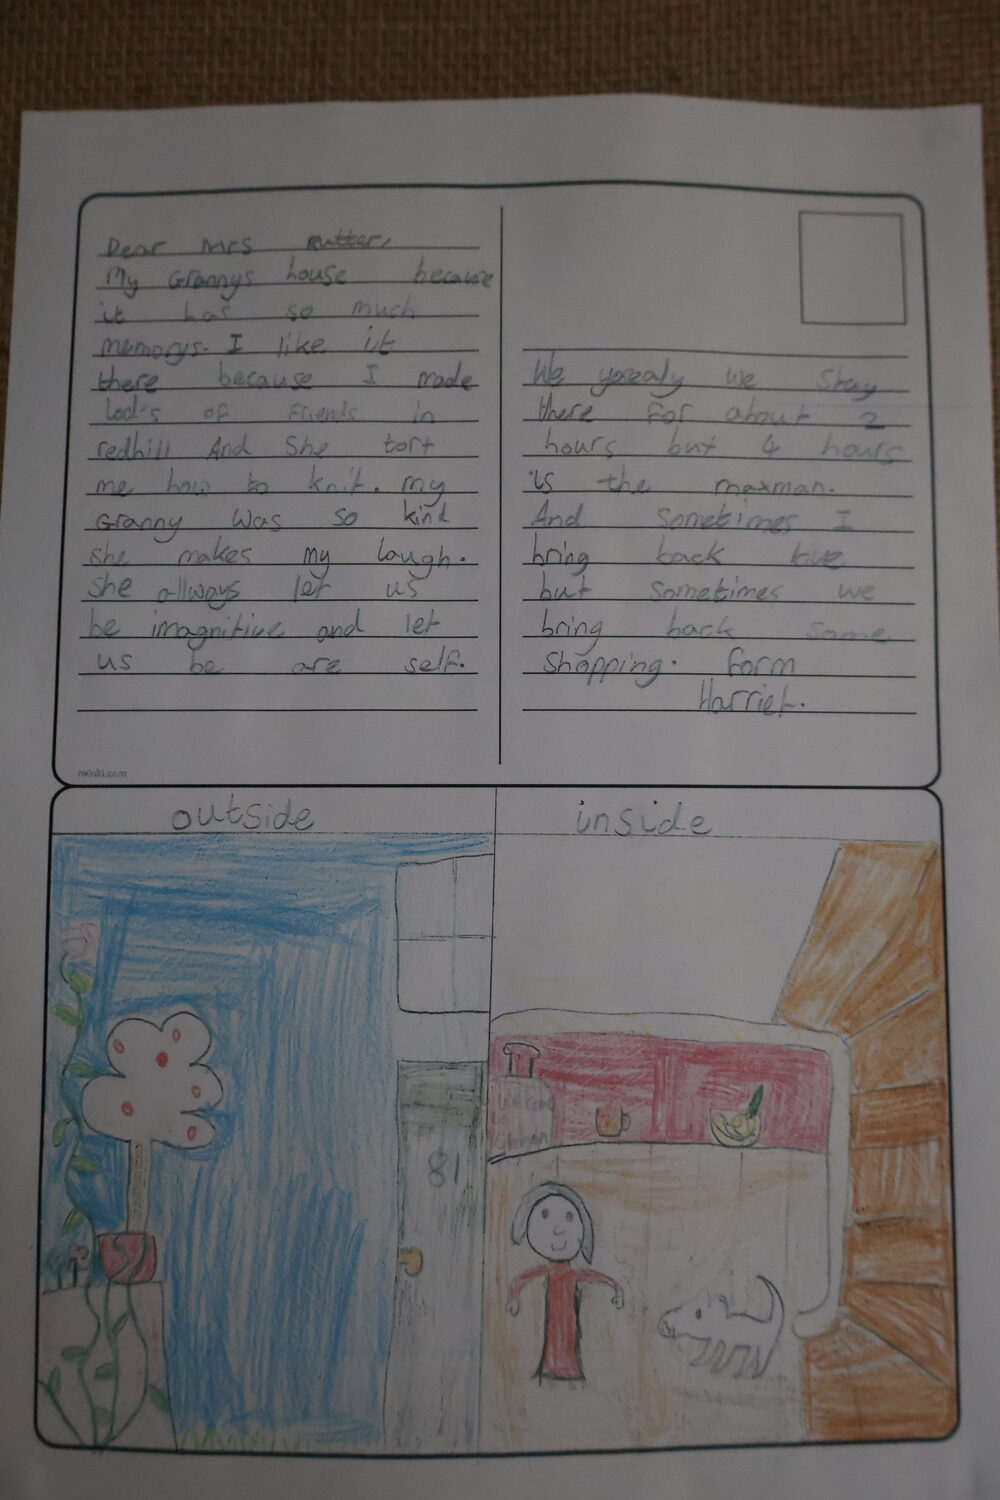 Dear Mrs Rutter,
My Grannys house because
it has so much
memorys. I like it
there because I made
lod's of friends in
redhill And She tort
me how to knit. my
Granny Was so kind
she makes my laugh.
she allways let us
be imagnitive and let
us be are self.
twinkl.com
We yorealy We Stay
there for about 2
hours but 4 hours
is the maxman.
And Sometimes I
bring back love
but Sometimes we
bring back some
Shopping. form
Harriet.
outside
inside
81
Welcome